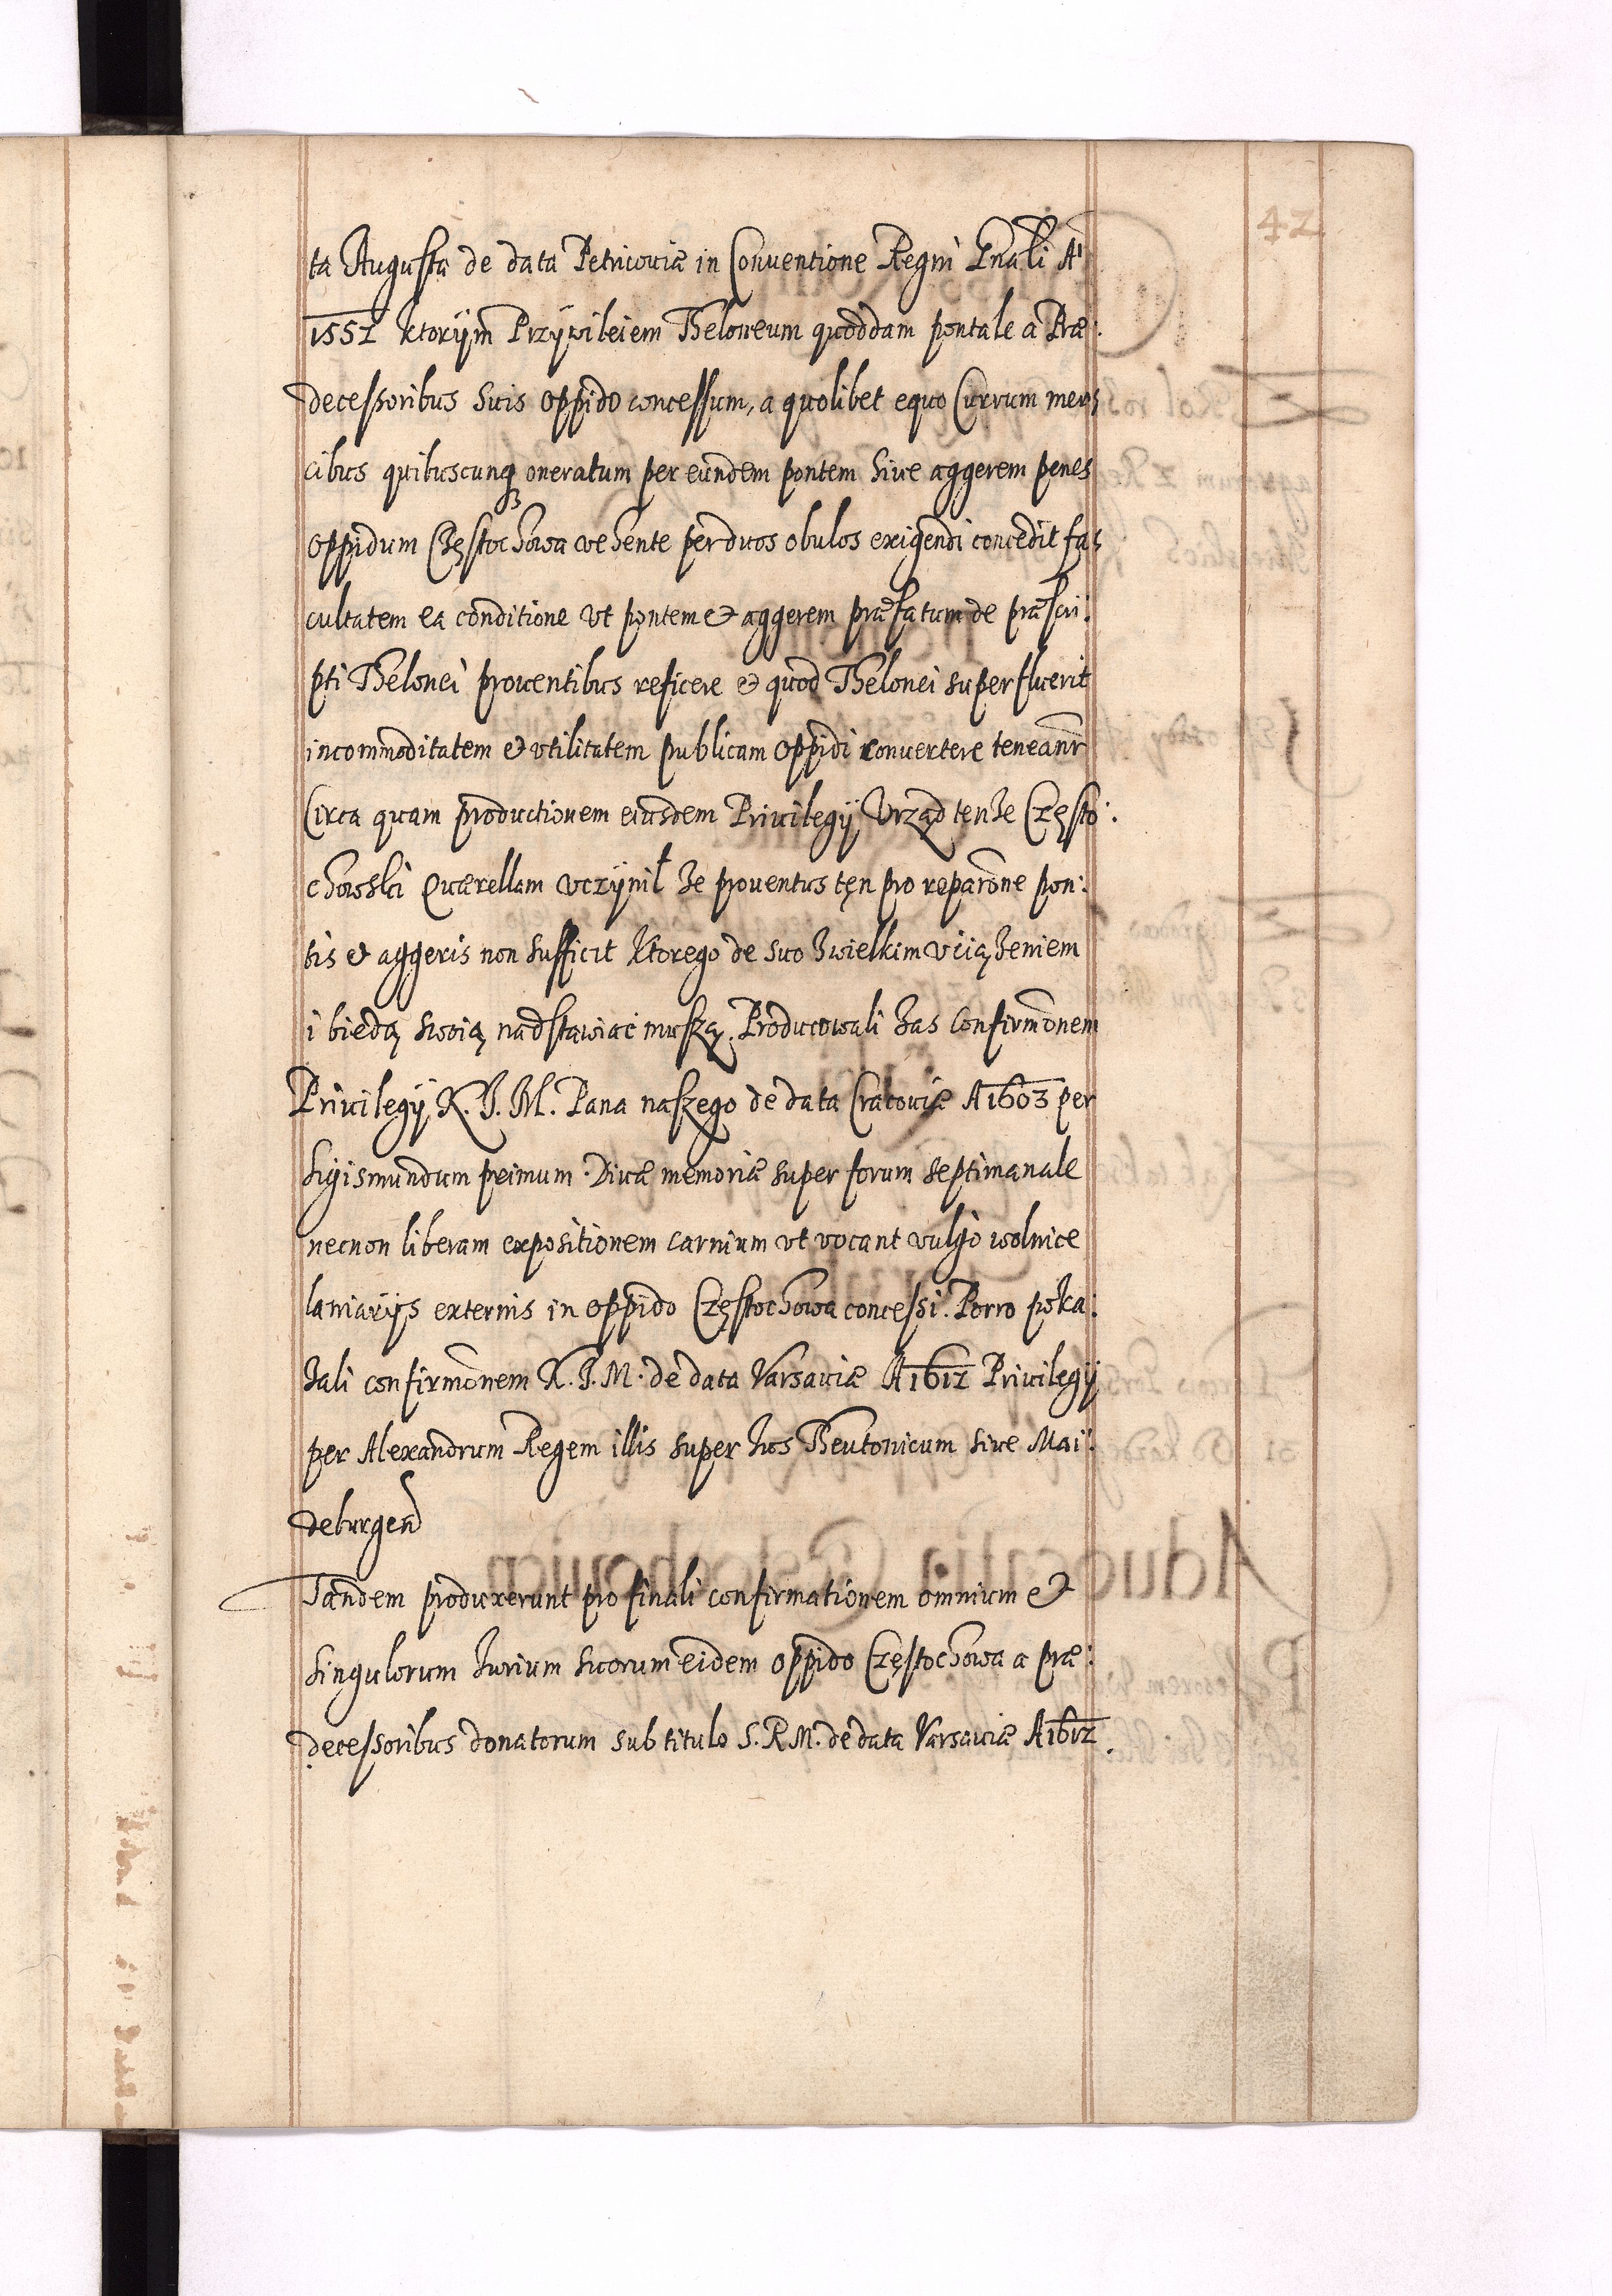 42
ta Augusta de data Petricouiæ in Conuentione Regni Gnali A°
1552 ktorÿm Przÿwileiem Theloneum quoddam pontale a Præ:
decessoribus suis oppido concessum, a quolibet equo Currum mer,
cibus quibuscunq; oneratum per eundem pontem siue aggerem penes
oppidum Częstochowa vehente per duos obulos exigendi concedit fa,
cultatem ea conditione vt pontem et aggerem præfatum de præscri:
pti Thelonei prouentibus reficere et quod Thelonei superfluerit
in commoditatem et vtilitatem publicam oppidi conuertere teneanr
Circa quam productionem eiusdem Priuilegÿ Vrząd tenże Często:
chowski Quærellam vczÿnił że prouentus tęn pro reparone pon:
tis et aggeris non sufficit ktorego de suo z wielkim vciążeniem
i biedą swoią nadstawiać muszą. Producowali zas Confirmonem
Priuilegÿ K. J. M. Pana naszego de data Cracouiæ A 1603 per
Sigismundum primum Diuæ memoriæ super forum septimanale
necnon liberam expositionem carnium vt vocant vulgo wolnice
laniarÿs externis in oppido Częstochowa concessi. Porro poka:
zali confirmonem K. J. M. de data Varsauiæ A 1612 Priuilegÿ
per Alexandrum Regem illis super Ius Theutonicum siue Mai:
deburgen
Tandem produxerunt pro finali confirmationem omnium et
singulorum Iurium suorum eidem oppido Częstochowa a præ:
decessoribus donatorum sub titulo S. R M. de data Varsauiæ A 1612.